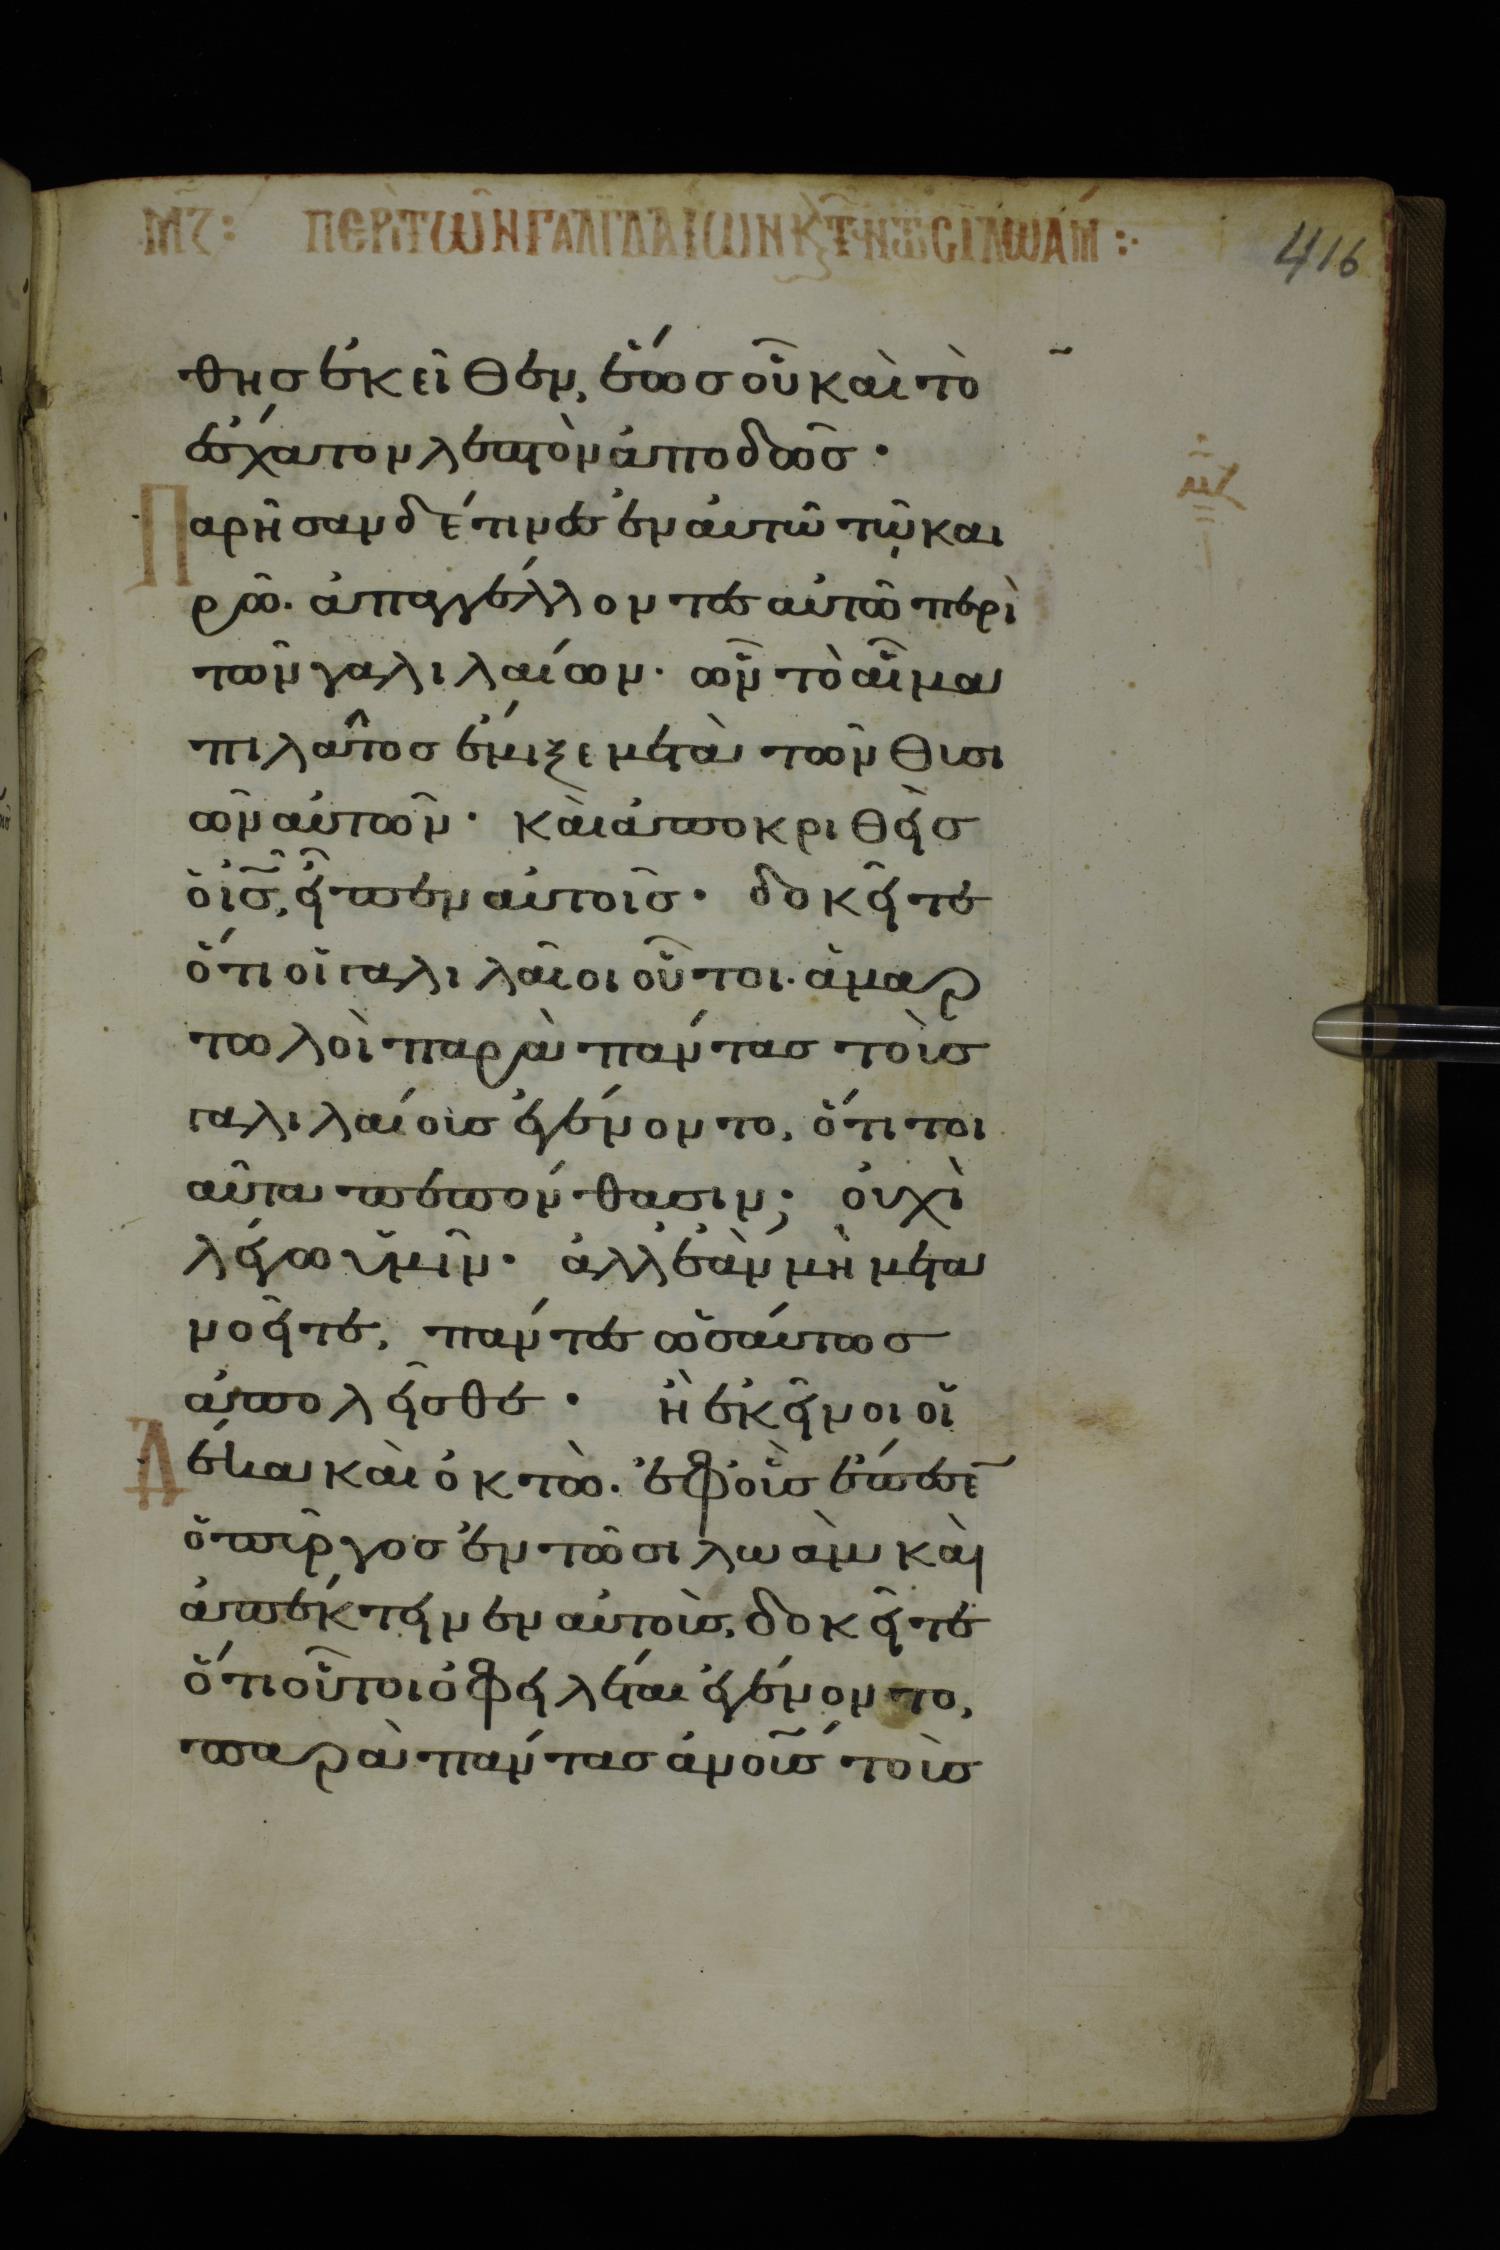 μζ: περι των γαλιλαίων κ τῶν ἐν τῶ σιλωάμ :·
416
θης ἐκεῖθεν, ἕως οὗ καὶ τὸ
ἔσχατον λεπτὸν ἀποδῶς·
μζ
Παρῆσαν δέ τινες ἐν αὐτῶ τῶ και
ρῶ. ἀπαγγέλλοντες αὐτῶ περὶ
τῶν γαλιλαίων· ὧν τὸ αἷμα
πιλᾶτος ἔμιξε μετὰ τῶν θυσι
ῶν αὐτῶν· καὶ ἀποκριθεὶς
ὁ ις, εἶπεν αὐτοῖς· δοκεῖτε
ὅτι οἱ γαλιλαῖοι οὗτοι. ἁμαρ
τωλοὶ παρὰ πάντας τοὺς
γαλιλαίους ἐγένοντο, ὅτι τοι
αῦτα πεπόνθασιν; οὐχὶ
λέγω ὑμῖν· ἀλλ' ἐὰν μὴ μετα
νοεῖτε, πάντες ὡσαύτως
ἀπολεῖσθε· ἢ ἐκεῖνοι οἱ
δέκα καὶ ὀκτὼ. ἐφ' οὓς ἔπεσε
ὁ πύργος ἐν τῶ σιλωὰμ καὶ
ἀπέκτεινεν αὐτοὺς, δοκεῖτε
ὅτι οὗτοι ὀφειλέται ἐγένοντο,
παρὰ πάντας ἀνους τοὺς